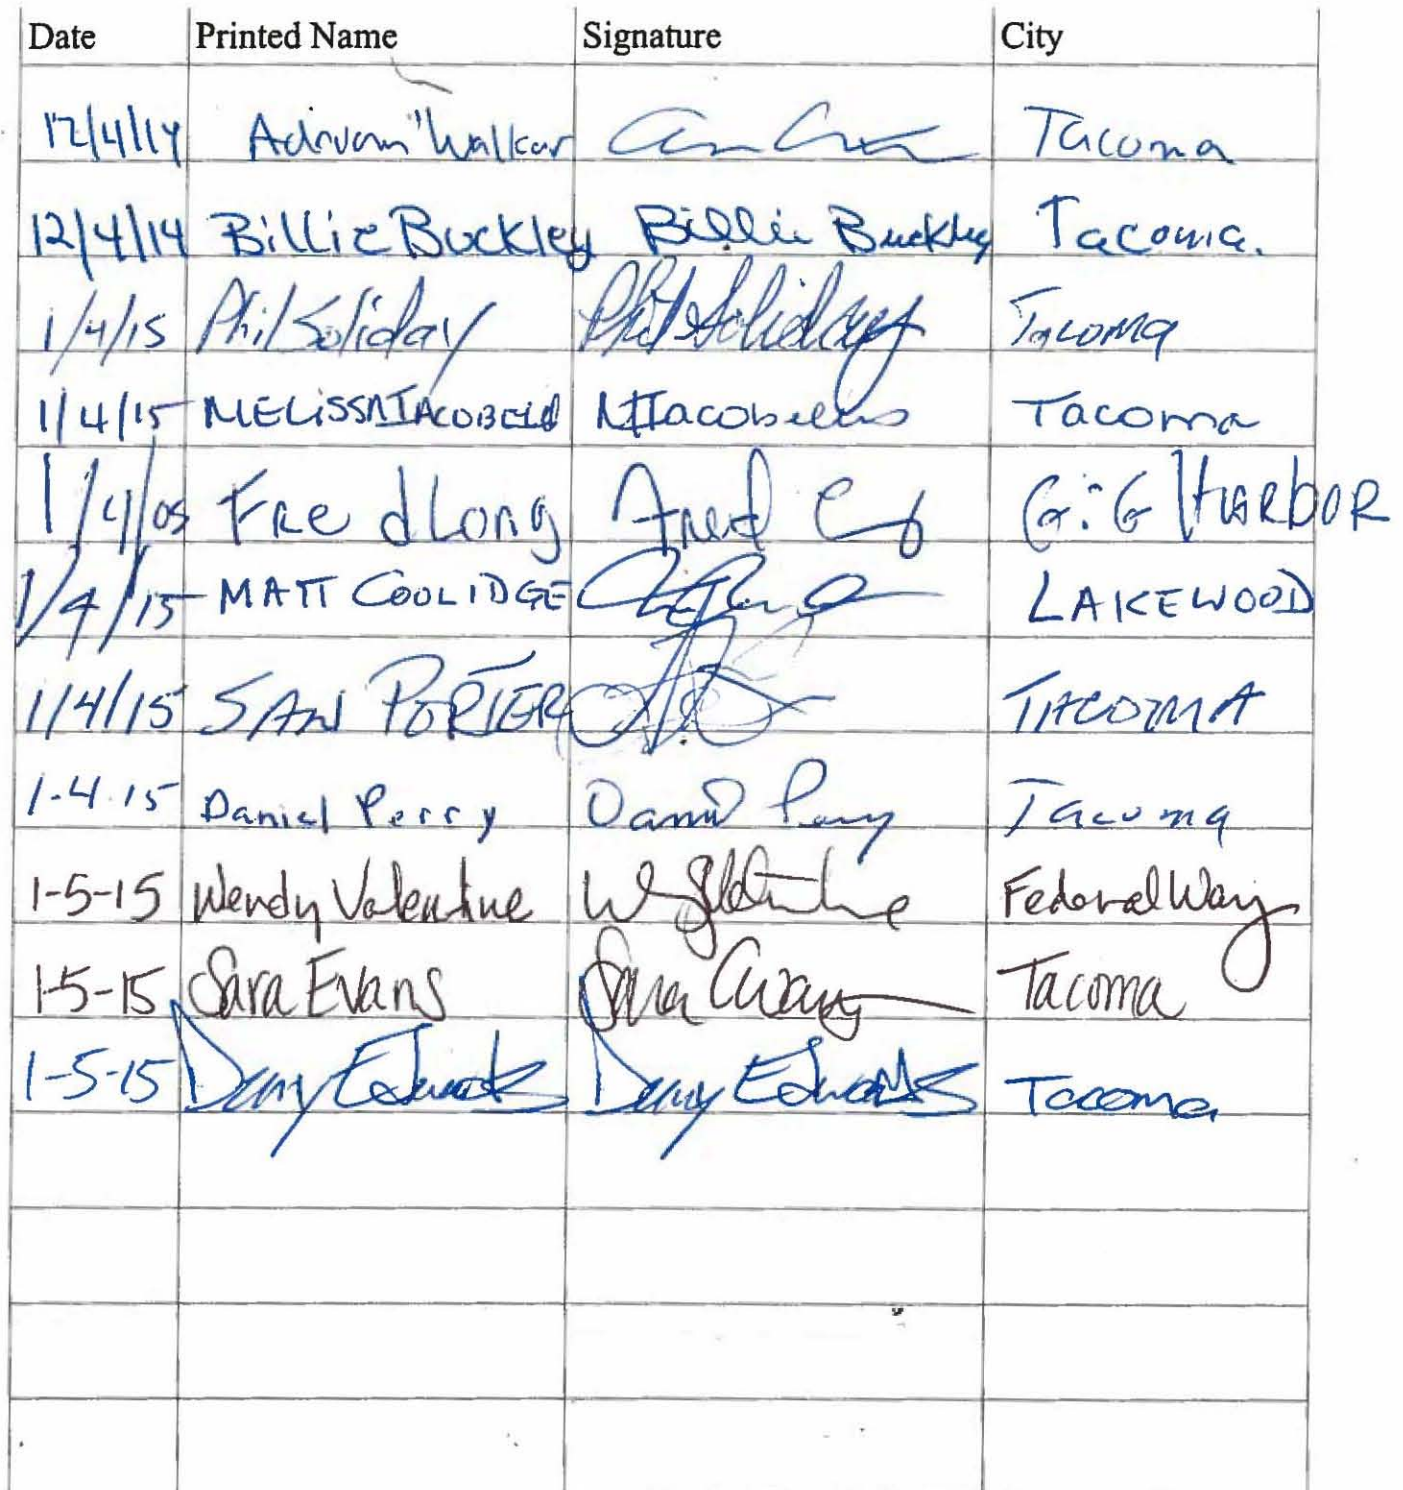 Date Printed Name Signature City
12/4/14 Walker Tacoma
12/4/14 Billie Buckley Billie Buckley Tacoma.
1/4/15 Phil Soliday Phil Soliday Tacoma
1/4/15 MELISSA IACOBELLIS MIacobellis Tacoma
1/4/05 Fred Long Fred GiG HARBOR
1/4/15 MATT COOLIDGE LAKEWOOD
1/4/15 PORTER TACOMA
1-4-15 Daniel Perry Daniel Perry Tacoma
1-5-15 Wendy Valentine Federal Way
1-5-15 Sara Evans Sara Evans Tacoma
1-5-15 Edwards Edwards Tacoma